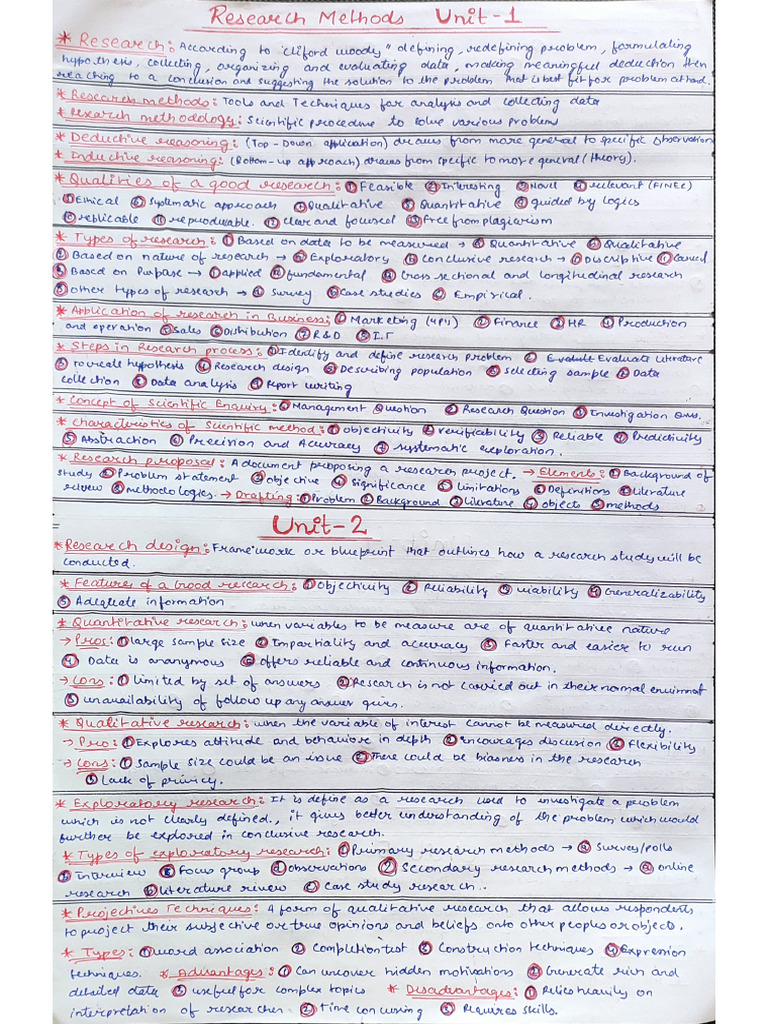 Research Methods Unit-1
* Research: According to "cliford woody" defining, redefining problem, formulating
hypothesis, collecting, organizing and evaluating data, making meaningful deduction then
reaching to a conclusion and suggesting the solution to the problem that is best fit for problem at hand.
* Research methods: Tools and Techniques for analysis and collecting data
* research methodology: Scientific procedure to solve various problem
* Deductive reasoning: (Top-Down application) draws from more general to specific observation
* Inductive reasoning: (Bottom-up approach) draws from specific to more general (theory).
* Qualities of a good research: ① Feasible ② Interesting ③ Novel ④ relevant (FINEC)
Ethical ⑥ Systematic approach ⑦ Qualitative ⑧ Quantitative ⑨ guided by logics
⑩ replicable ⑪ reproducable. ⑫ clear and focused ⑬ Free from plagiarism
* Types of research: ① Based on data to be measured → Quantitative Qualitative
② Based on nature of research → Exploratory Conclusive research → Discriptive Causal
③ Based on Purpase → applied fundamental cross sectional and longitudinal research
other types of research → Survey Case studies Empirical.
* Application of research in Business: ① Marketing (4P's) ② Finance ③ HR ④ Production
and operation ⑤ Sales ⑥ Distribution ⑦ R&D ⑧ I.T
* Steps in Research process: ① Identify and define research problem ② Evaluate Literature
③ to create hypothesis ④ Research design ⑤ Describing population ⑥ selecting sample ⑦ Data
collection ⑧ Data analysis ⑨ Report writing
* Concept of Scientific Enquiry: ① Management Question ② Research Question ③ Investigation Ques.
* characteristics of Scientific method: ① objectivity ② verifiability ③ Reliable ④ Predictivity
⑤ Abstraction ⑥ Precision and Accuracy ⑦ systematic exploration.
* Research proposal: A document proposing a research project. → Elements: ① Background of
study ② Problem statement ③ objective ④ Significance ⑤ limitations ⑥ Definitions ⑦ literature
review ⑧ methodologies. → Drafting: ① Problem ② Background ③ literature ④ objects ⑤ methods
Unit-2
* Research design: Framework or blueprint that outlines how a research study will be
conducted.
* Features of a Good research: ① Objectivity ② Reliability ③ viability ④ Generalizability
⑤ Adequate information
* Quantitative research: when variables to be measure are of quantitative nature
→ Pros: ① large sample size ② Impartiality and accuracy ③ Faster and easier to run
④ Data is anonymous ⑤ offers reliable and continuous information.
→ Cons: ① limited by set of answers ② Research is not carried out in their normal
③ unavailability of follow up any answer given.
* Qualitative research: when the variable of interest cannot be measured directly.
→ Pro: ① Explores attitude and behaviore in depth ② Encourages discussion ③ flexibility
→ Cons: ① Sample size could be an issue ② There could be biasness in the research
③ Lack of privicy.
* Exploratory research: It is define as a research used to investigate a problem
which is not clearly defined., it gives better understanding of the problem which would
further be explored in conclusive research.
* Types of exploratory research: ① Primary research methods → ⓐ Survey/polls
ⓑ Interview ⓒ Focus group ⓓ observations ② Secondary research methods → ⓐ online
research ⓑ literature review ⓒ case study research..
* Projectives Techniques: A form of qualitative research that allows respondents
to project their subjective or true opinions and beliefs onto other peoples or objects.
* Types: ① word association ② Completion test ③ Construction techniques ④ Expression
techniques. * Advantages: ① Can uncover hidden motivations ② Generate rich and
detailed data ③ useful for complex topics * Disadvantages: ① Relies heavily on
interpretation of researcher ② Time consuming ③ Requires skills.